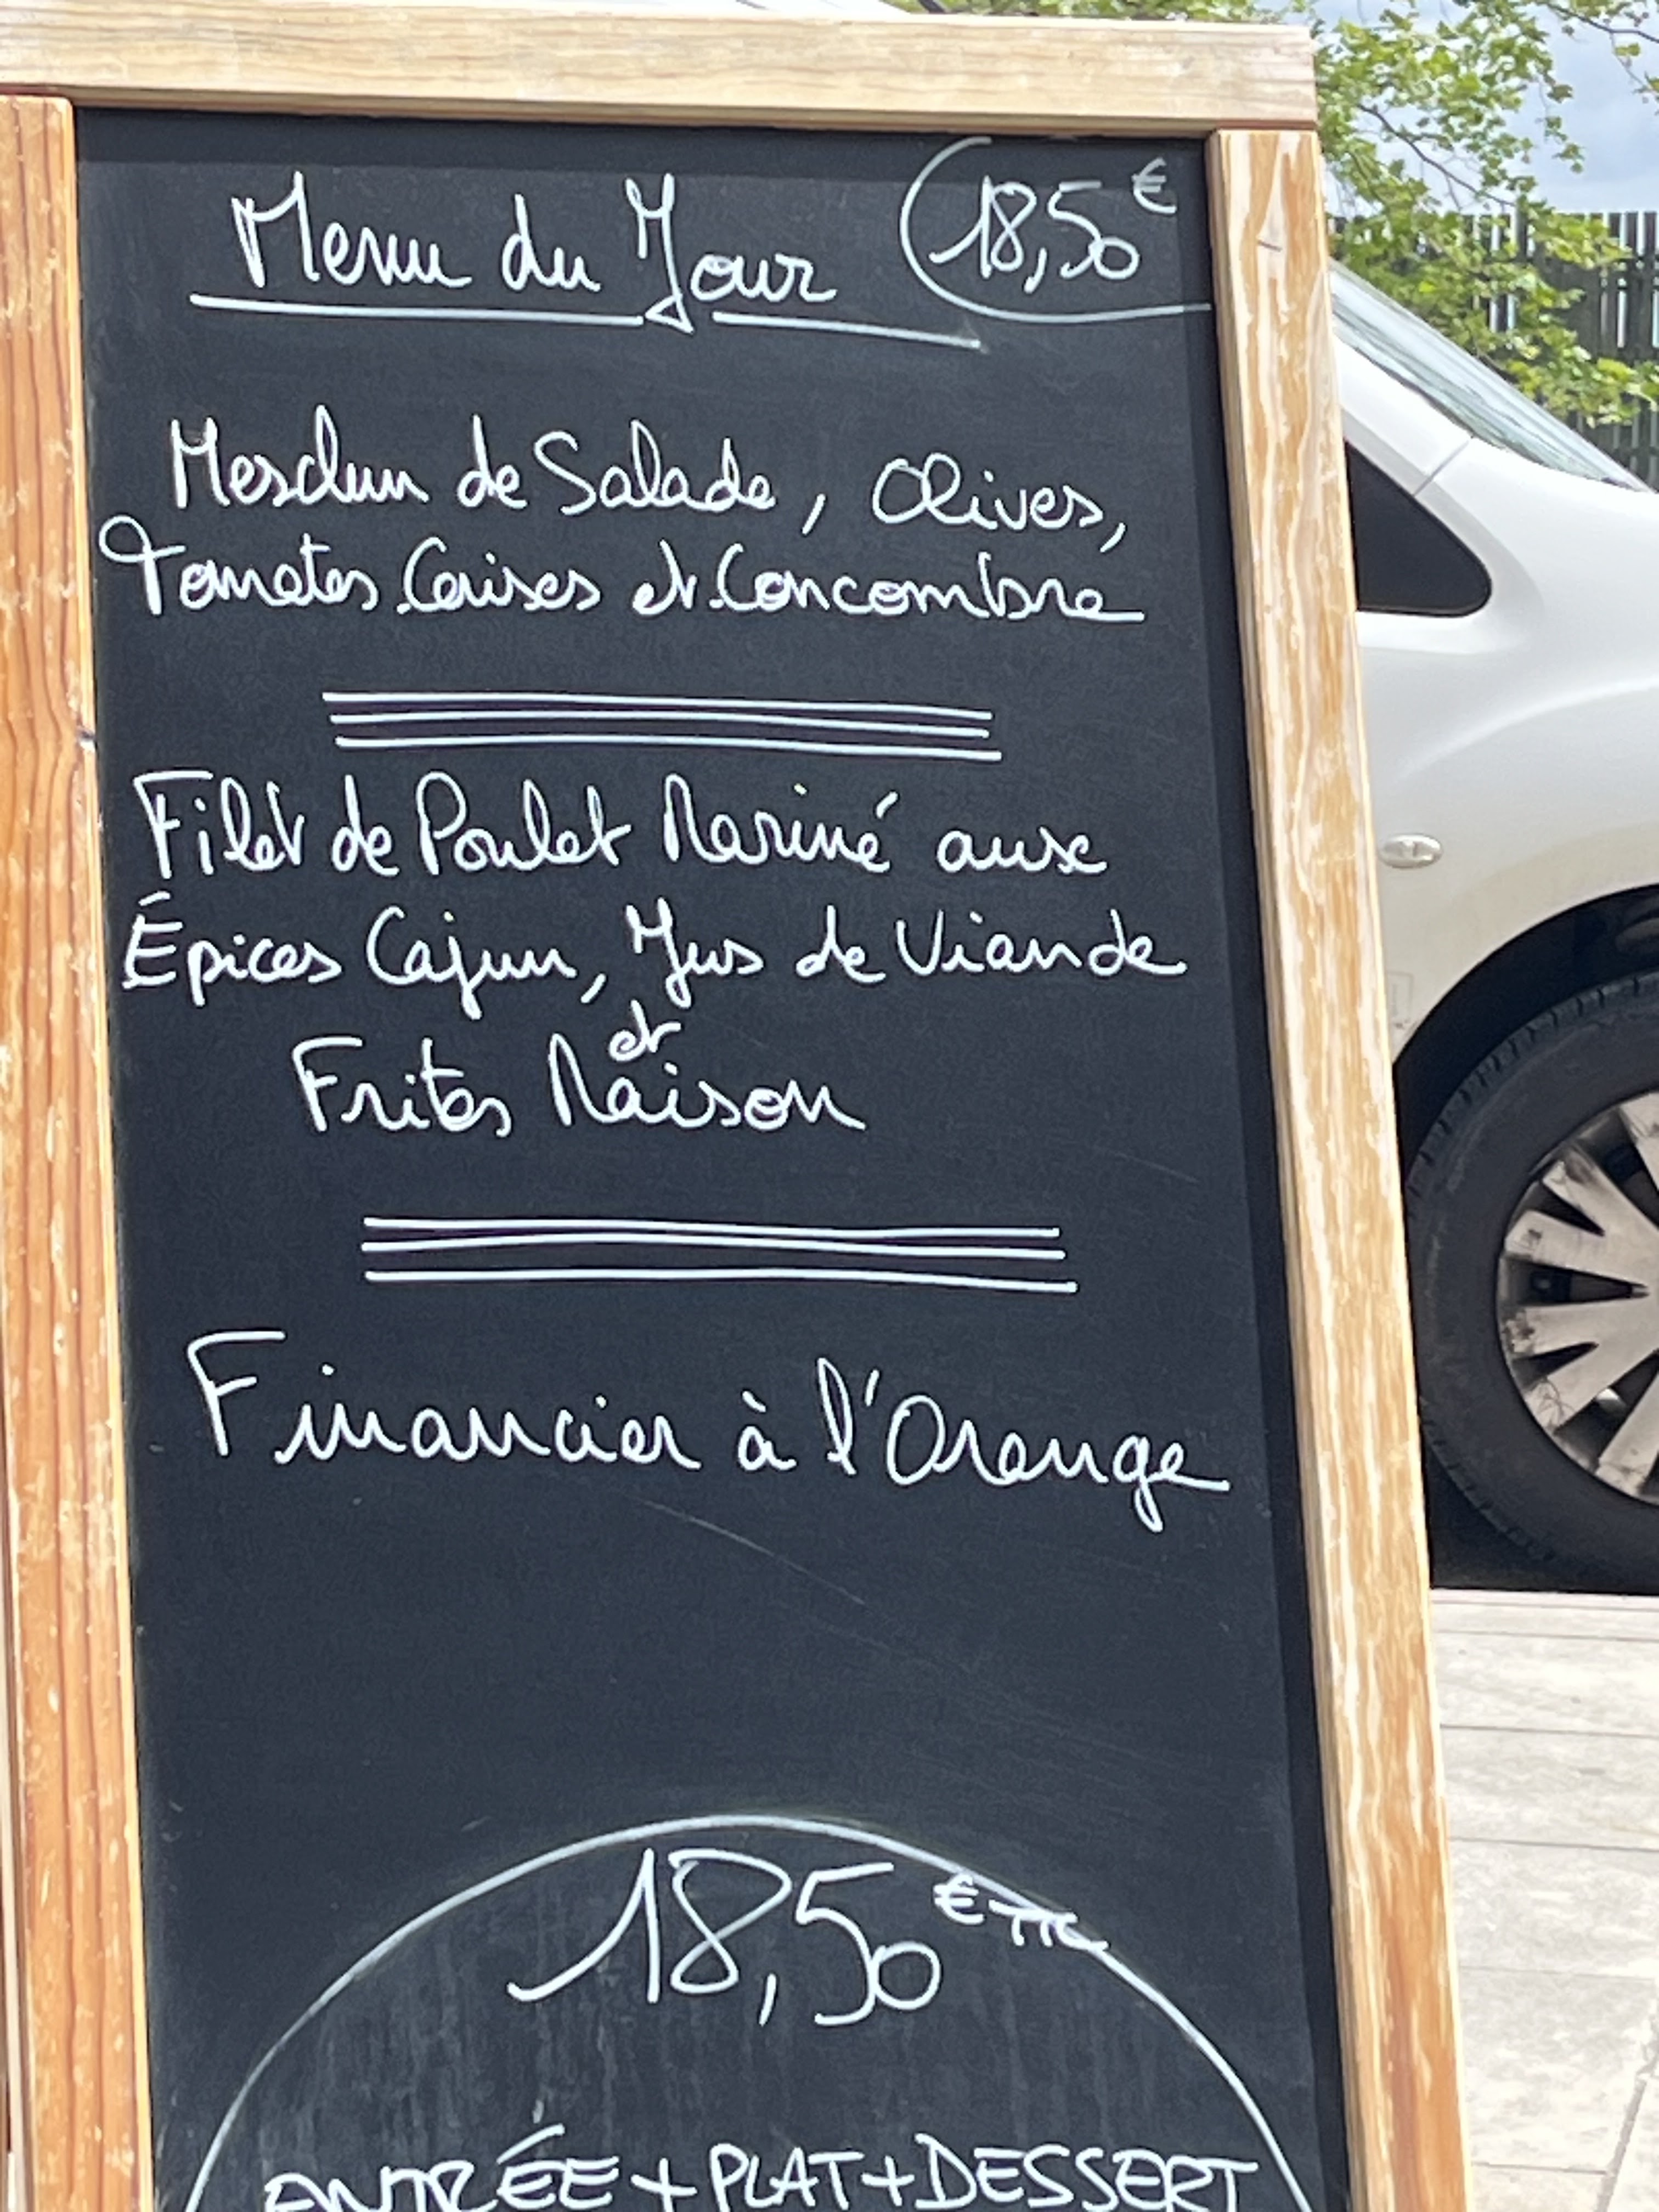 Menu du Jour 18,50 €
Mesclun de Salade, Olives,
Tomates Cerises et Concombre
Filet de Poulet Mariné aux
Épices Cajun, Jus de Viande
et
Frites Maison
Financier à l'Orange
18,50 € TTC
ENTRÉE + PLAT + DESSERT